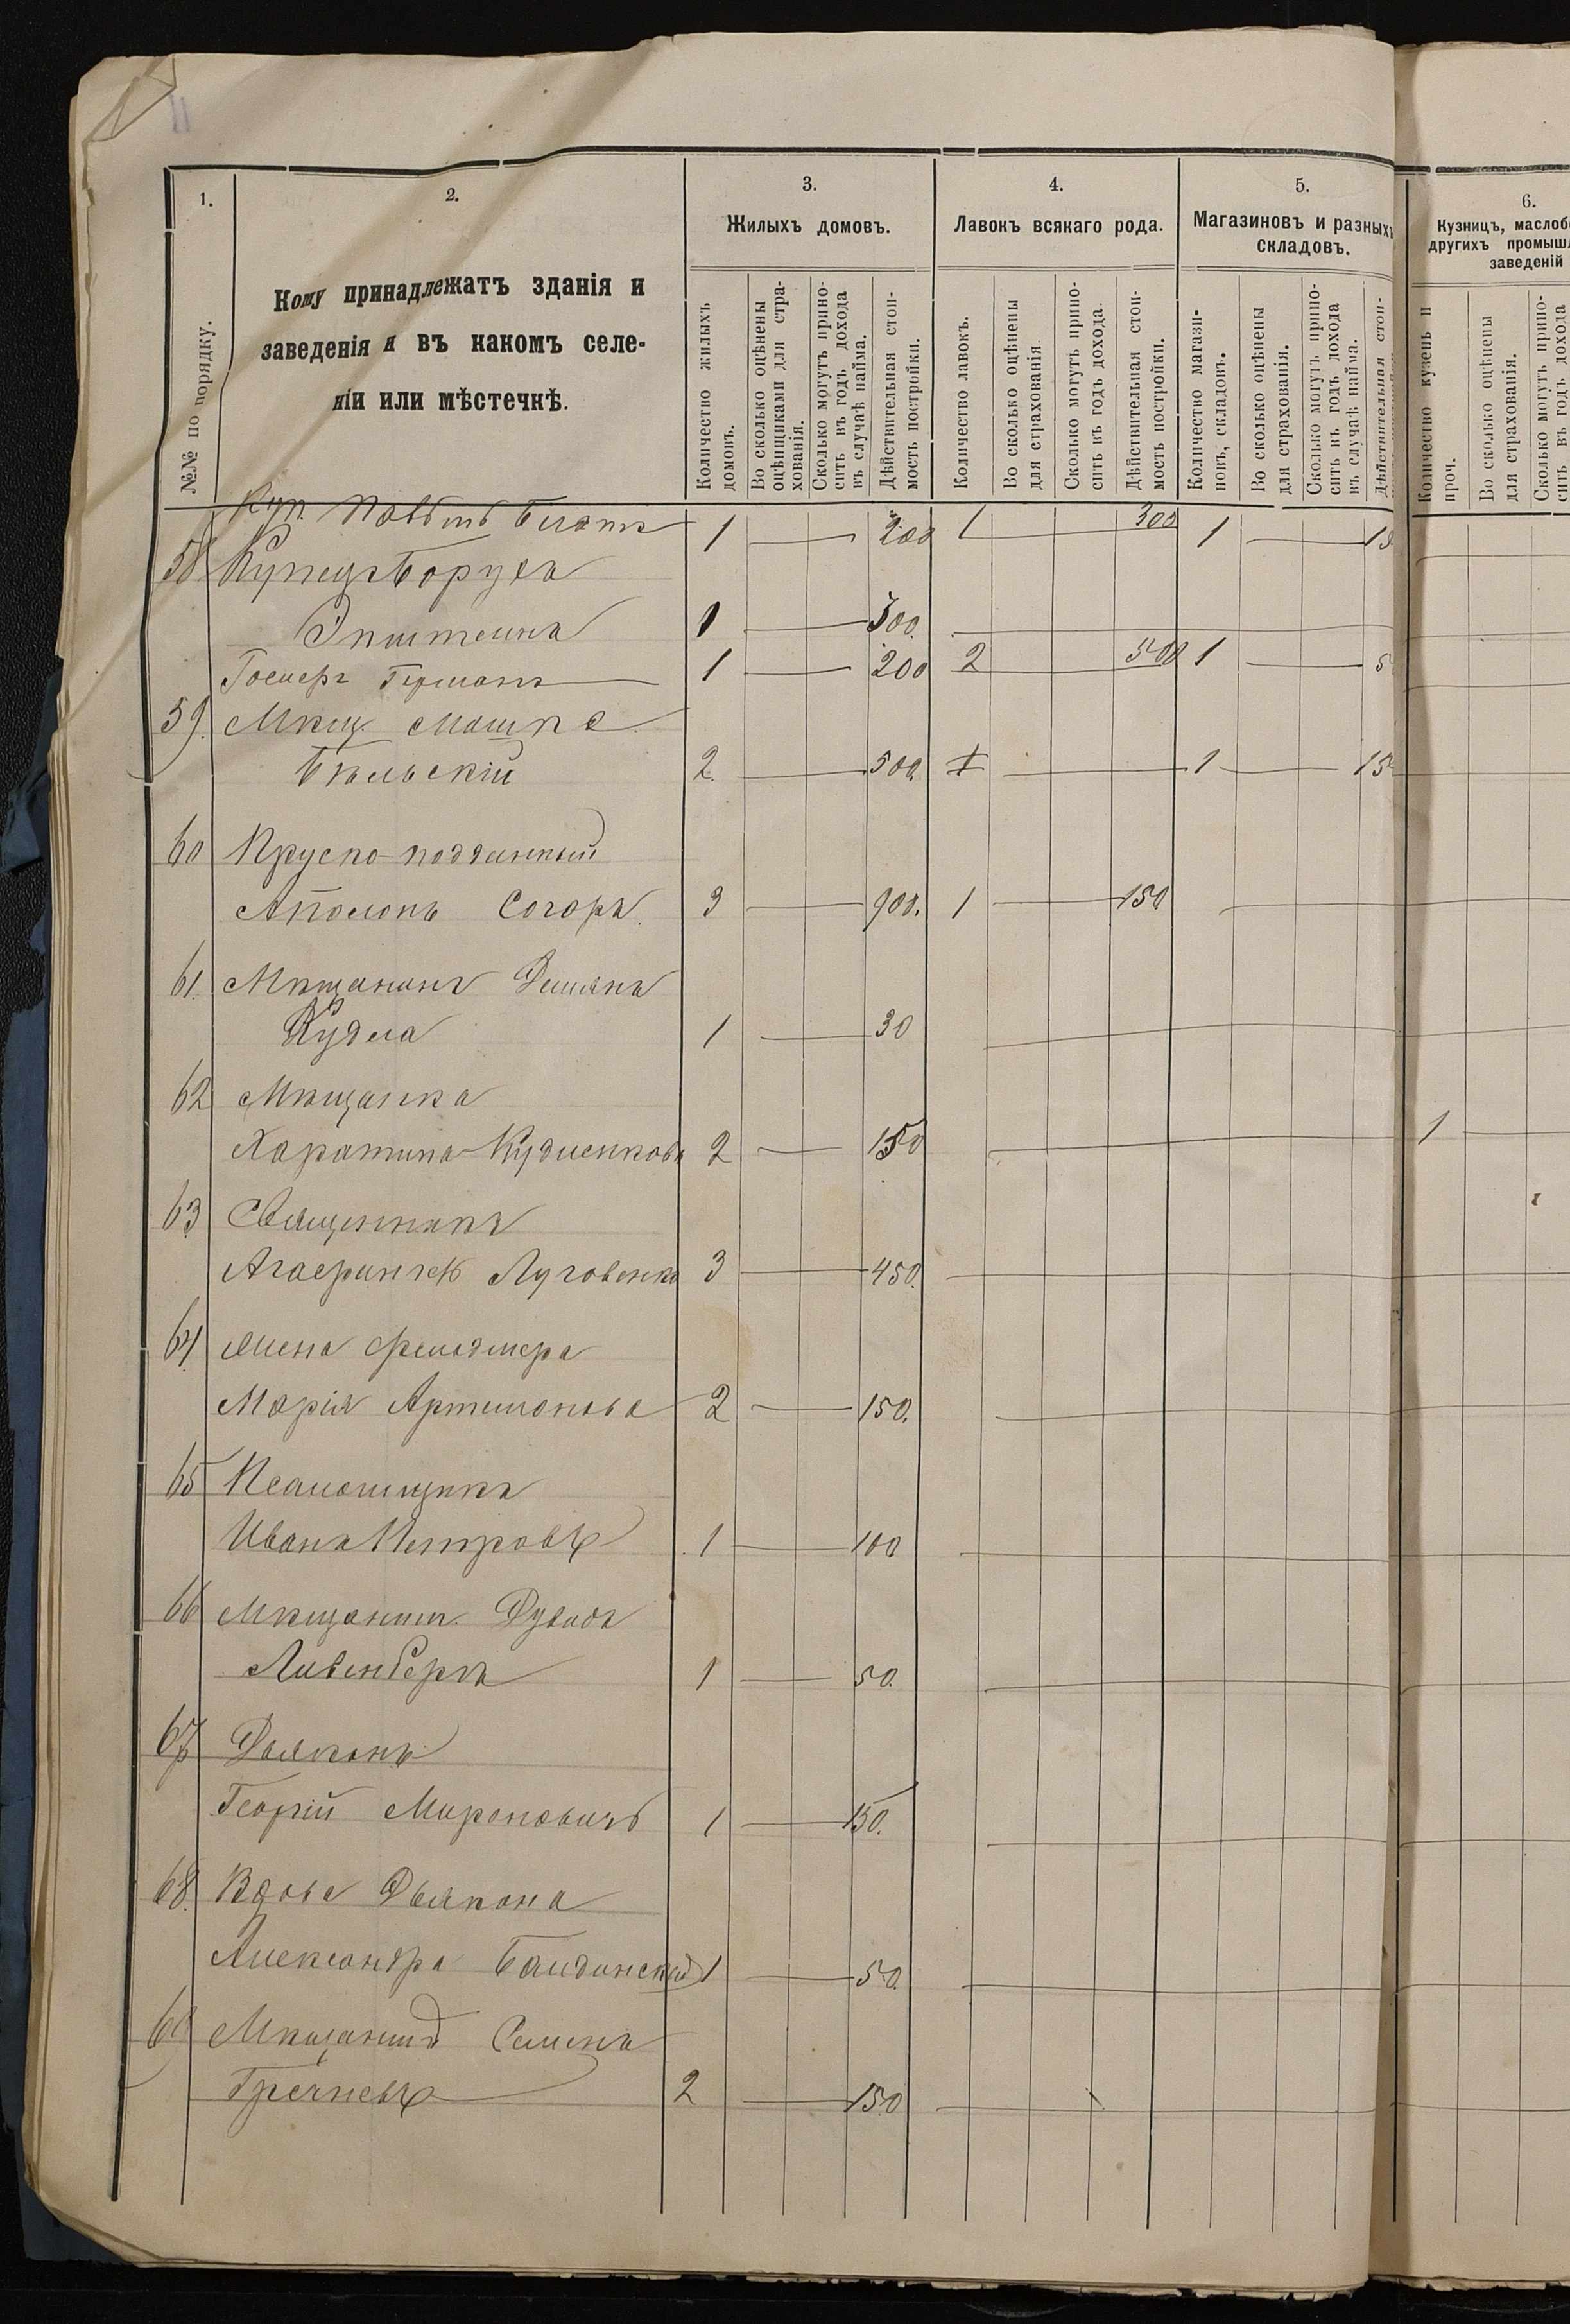 1.
2.
3.
4.
5.
6.
№№ по порядку.
Кому принадлежатъ зданія и
заведенія и въ какомъ селе-
ніи или мѣстечкѣ.
Жилыхъ домовъ.
Лавокъ всякаго рода.
Магазиновъ и разныхъ
складовъ.
Кузницъ, маслоб
другихъ промыш
заведеній
Количество жилыхъ
домовъ.
Во сколько оцѣнены
оцѣнщиками для стра-
хованія.
Сколько могутъ прино-
сить въ годъ дохода
въ случаѣ найма.
Дѣйствительная стои-
мость постройки.
Количество лавокъ.
Во сколько оцѣнены
для страхованія.
Сколько могутъ прино-
сить въ годъ дохода.
Дѣйствительная стои-
мость постройки.
Количество магази-
новъ, складовъ.
Во сколько оцѣнены
для страхованія.
Сколько могутъ прино-
сить въ годъ дохода
въ случаѣ найма.
Дѣйствительная стои-
Количество кузенъ и
проч.
Во сколько оцѣнены
для страхованія.
Сколько могутъ прино-
сить въ годъ дохода
Куп. 1 200 1 300 1
58 Купецъ Борухъ
Эпштейнъ 1 300.
Германъ 1 200 2 500 1
59. Мѣщ. Мошка
Бѣльскій 2. 500. 1 1 15
60 Пруско-подданный
Аполонъ Согоръ 3 900. 1 150
61. Мѣщанинъ Демянъ
Кудла 1 30
62 Мѣщанка
Харатина Кудленкова 2 150 1
63 Священникъ
Луговенко 3 450.
64 Жена фельдшера
Марія Артимонова 2 150.
65 Псаломщикъ
Иванъ Петровъ 1 100
66 Мѣщанинъ Дувидъ
Ливенбергъ 1 50.
67 Дьяконъ
Георгій Мироновичъ 1 150.
68. Вдова Дьякона
Александра 1 50.
69 Мѣщанинъ Семенъ
Гречневъ 2 150